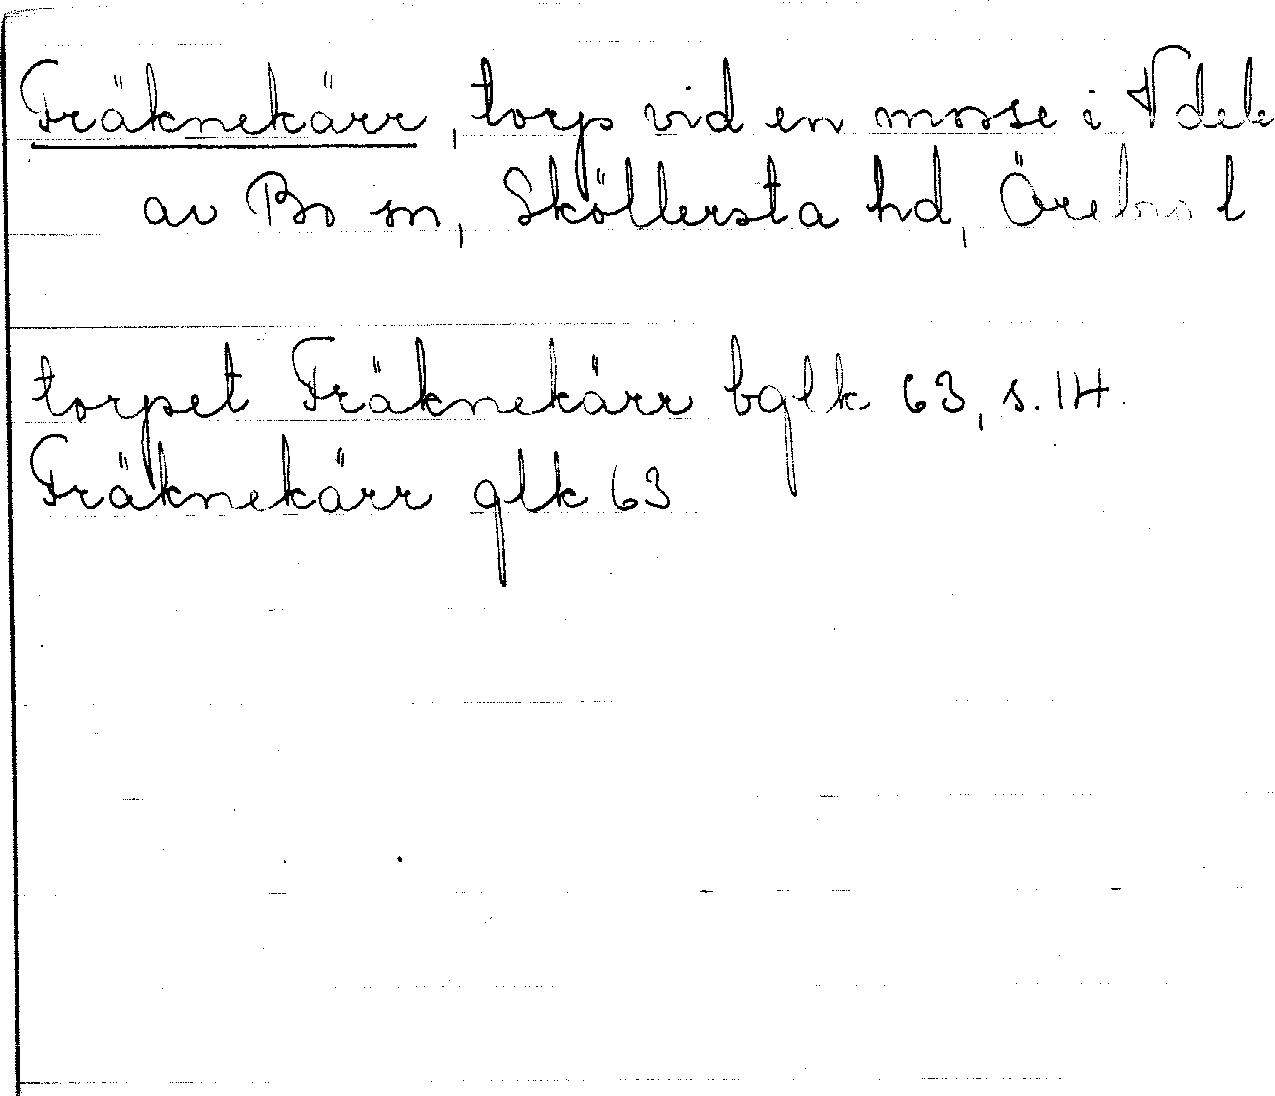 Fräknekärr, torp vid en mosse i V del
av Bo sn, Sköllersta hd, Örebro l
torpet Fräknekärr bglk 63, s. 14.
Fräknekärr glk 63